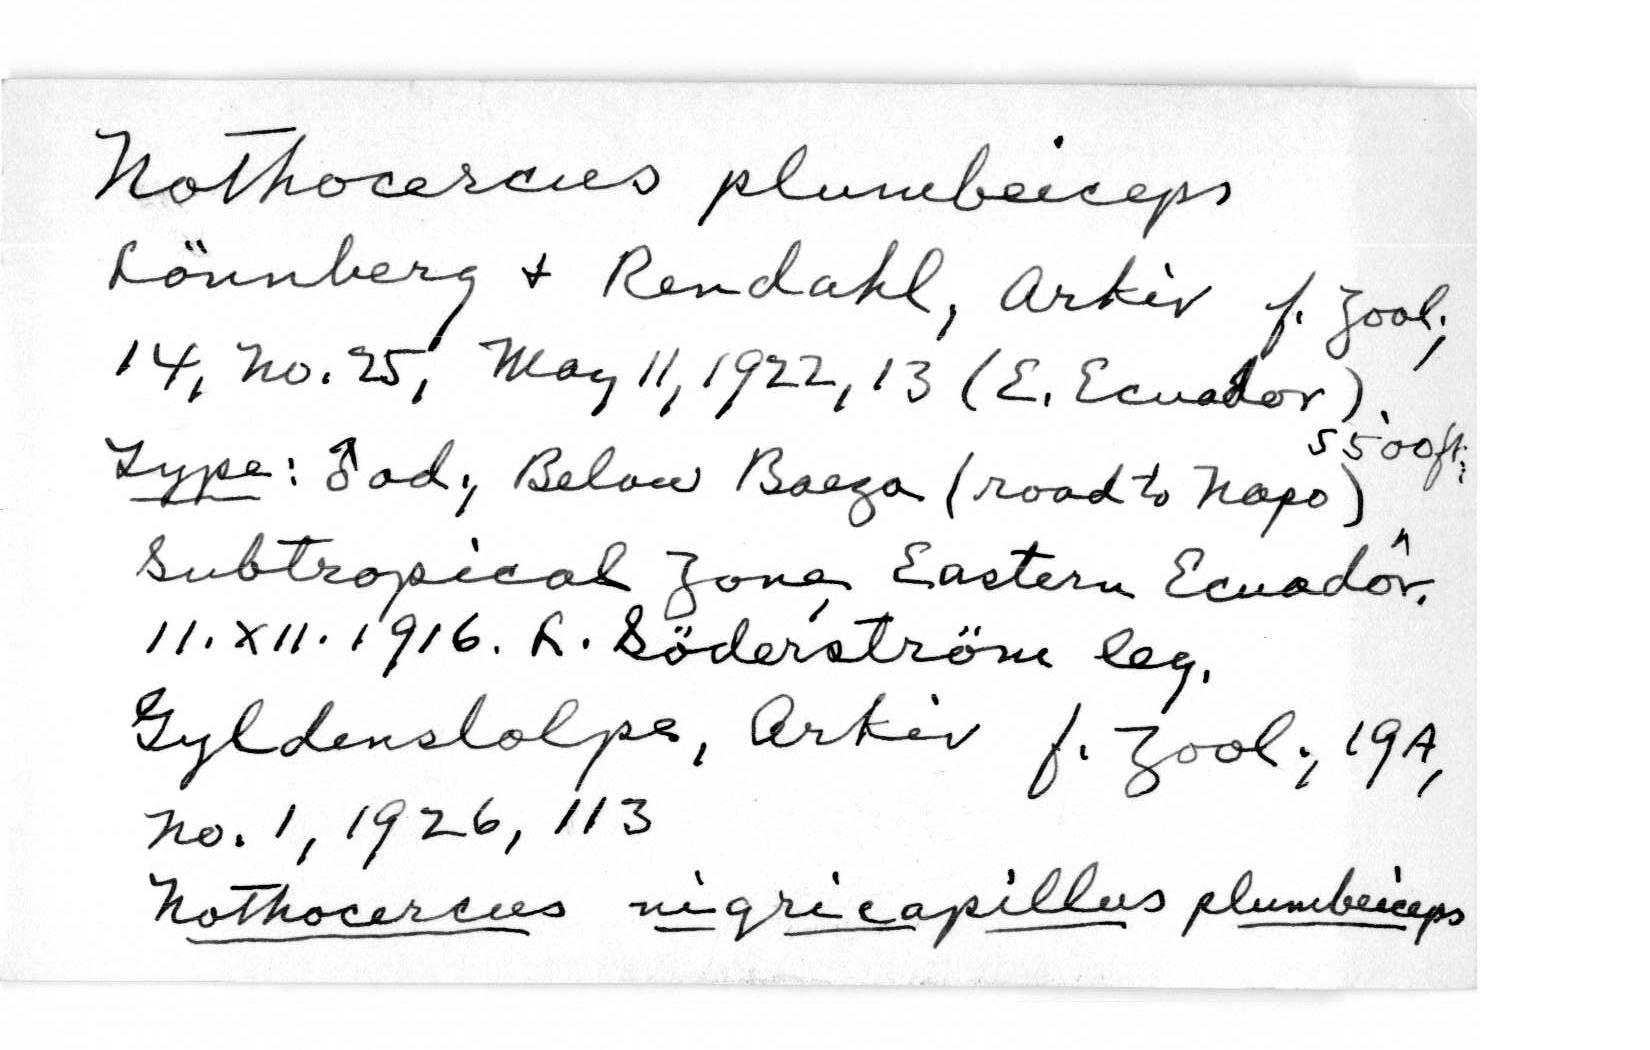 Nothocercus plumbeiceps
Lönnberg + Rendahl, Arkiv f. Zool.,
14, No. 25, May 11, 1922, 13 (E. Ecuador).
Type: ♂ ad., Below Baeza (road to Napo) 5500ft.,
Subtropical Zone, Eastern Ecuador.
11.XII.1916. L. Söderström leg.
Gyldenstolpe, Arkiv f. Zool., 19A,
No. 1, 1926, 113
Nothocercus nigricapillus plumbeiceps